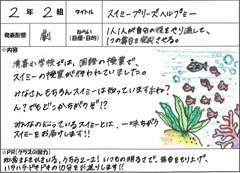 2年2組 タイトル スイミープリーズヘルプミー
発表形態 劇 ねらい(目標・目的) 1人1人が自分の役をやり通して、
1つの劇を完成させる。
内容
清春小学校では、国語の授業で
スイミーの授業が行われていました。
みなさんもちろんスイミーは知っていますよね?
え?でもどこかちがうぞ!?
みんなの知っているスイミーとは、一味ちがう
スイミーをお届けします!!
PR(クラスの魅力)
いつもの明るさで、舞台をもり上げ、
ハラハラドキドキの10分をお送りします!!